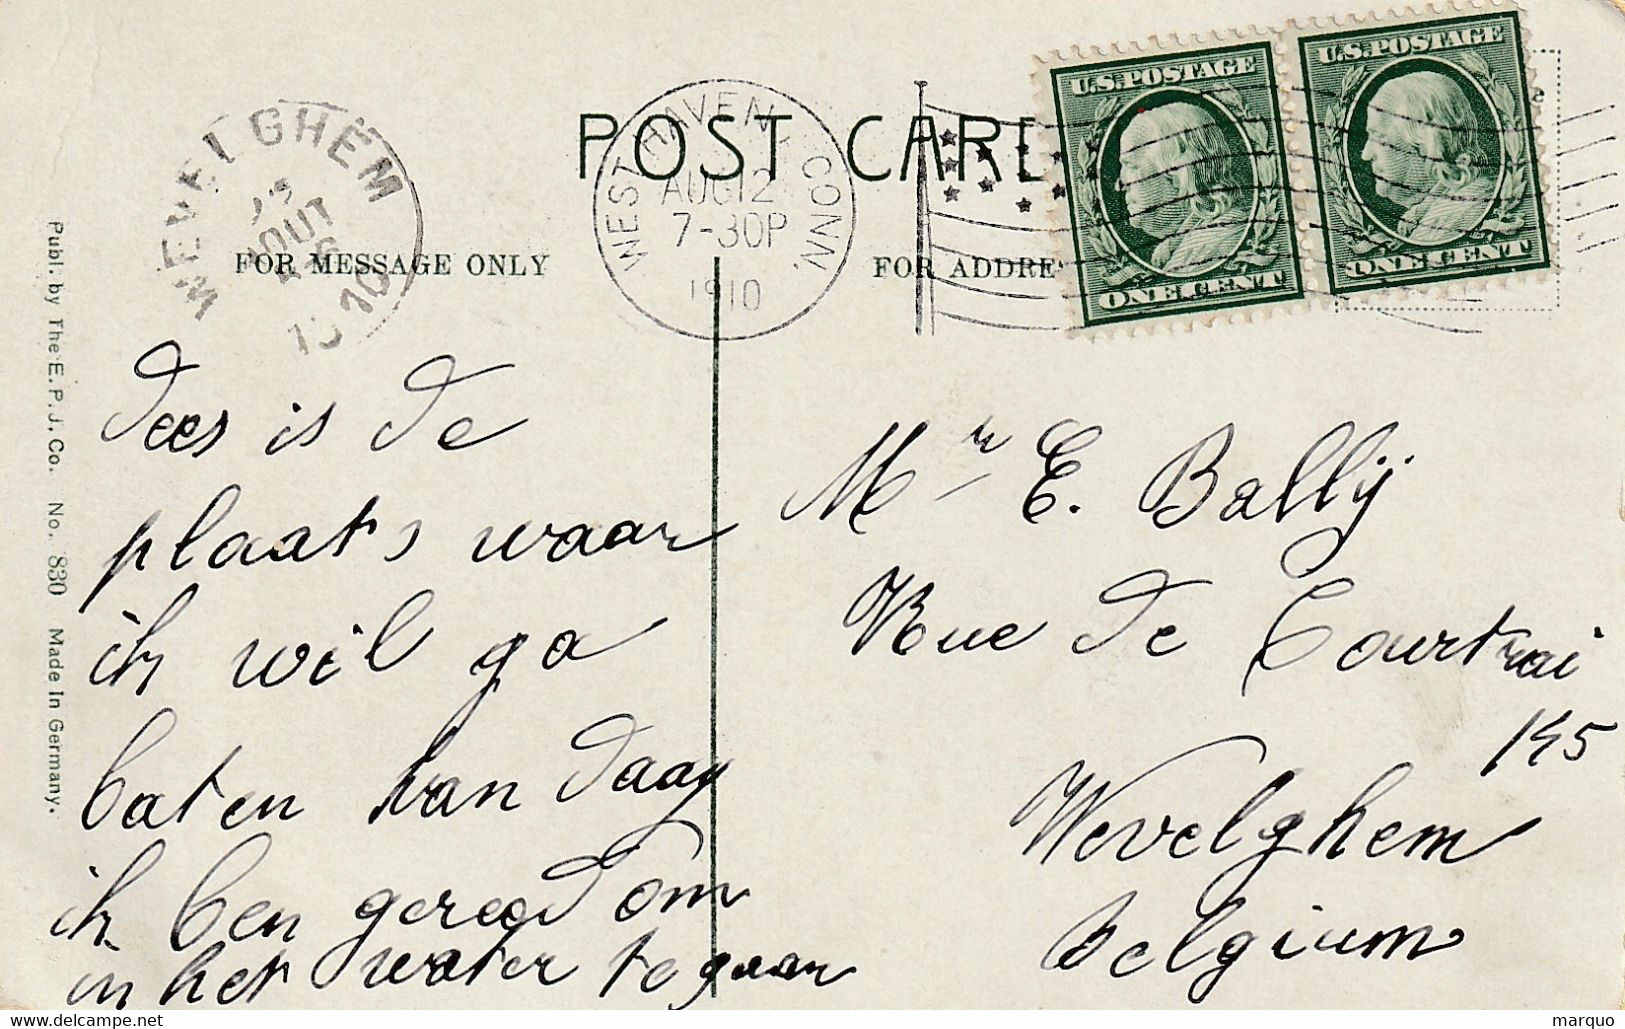 POST CARD
WEST HAVEN, CONN.
AUG 12
7-30P
1910
WEVELGHEM
AOUT
10
U.S. POSTAGE
ONE CENT
U.S. POSTAGE
ONE CENT
FOR MESSAGE ONLY
FOR ADDRE
Publ. by The E. P. J. Co. No. 830 Made In Germany.
dees is de
plaats waar
ik wil ga
baten van daag
ik ben gereed om
in het water te gaan
Mr E. Ballÿ
Rue de Courtrai
145
Wevelghem
Belgium
marquo